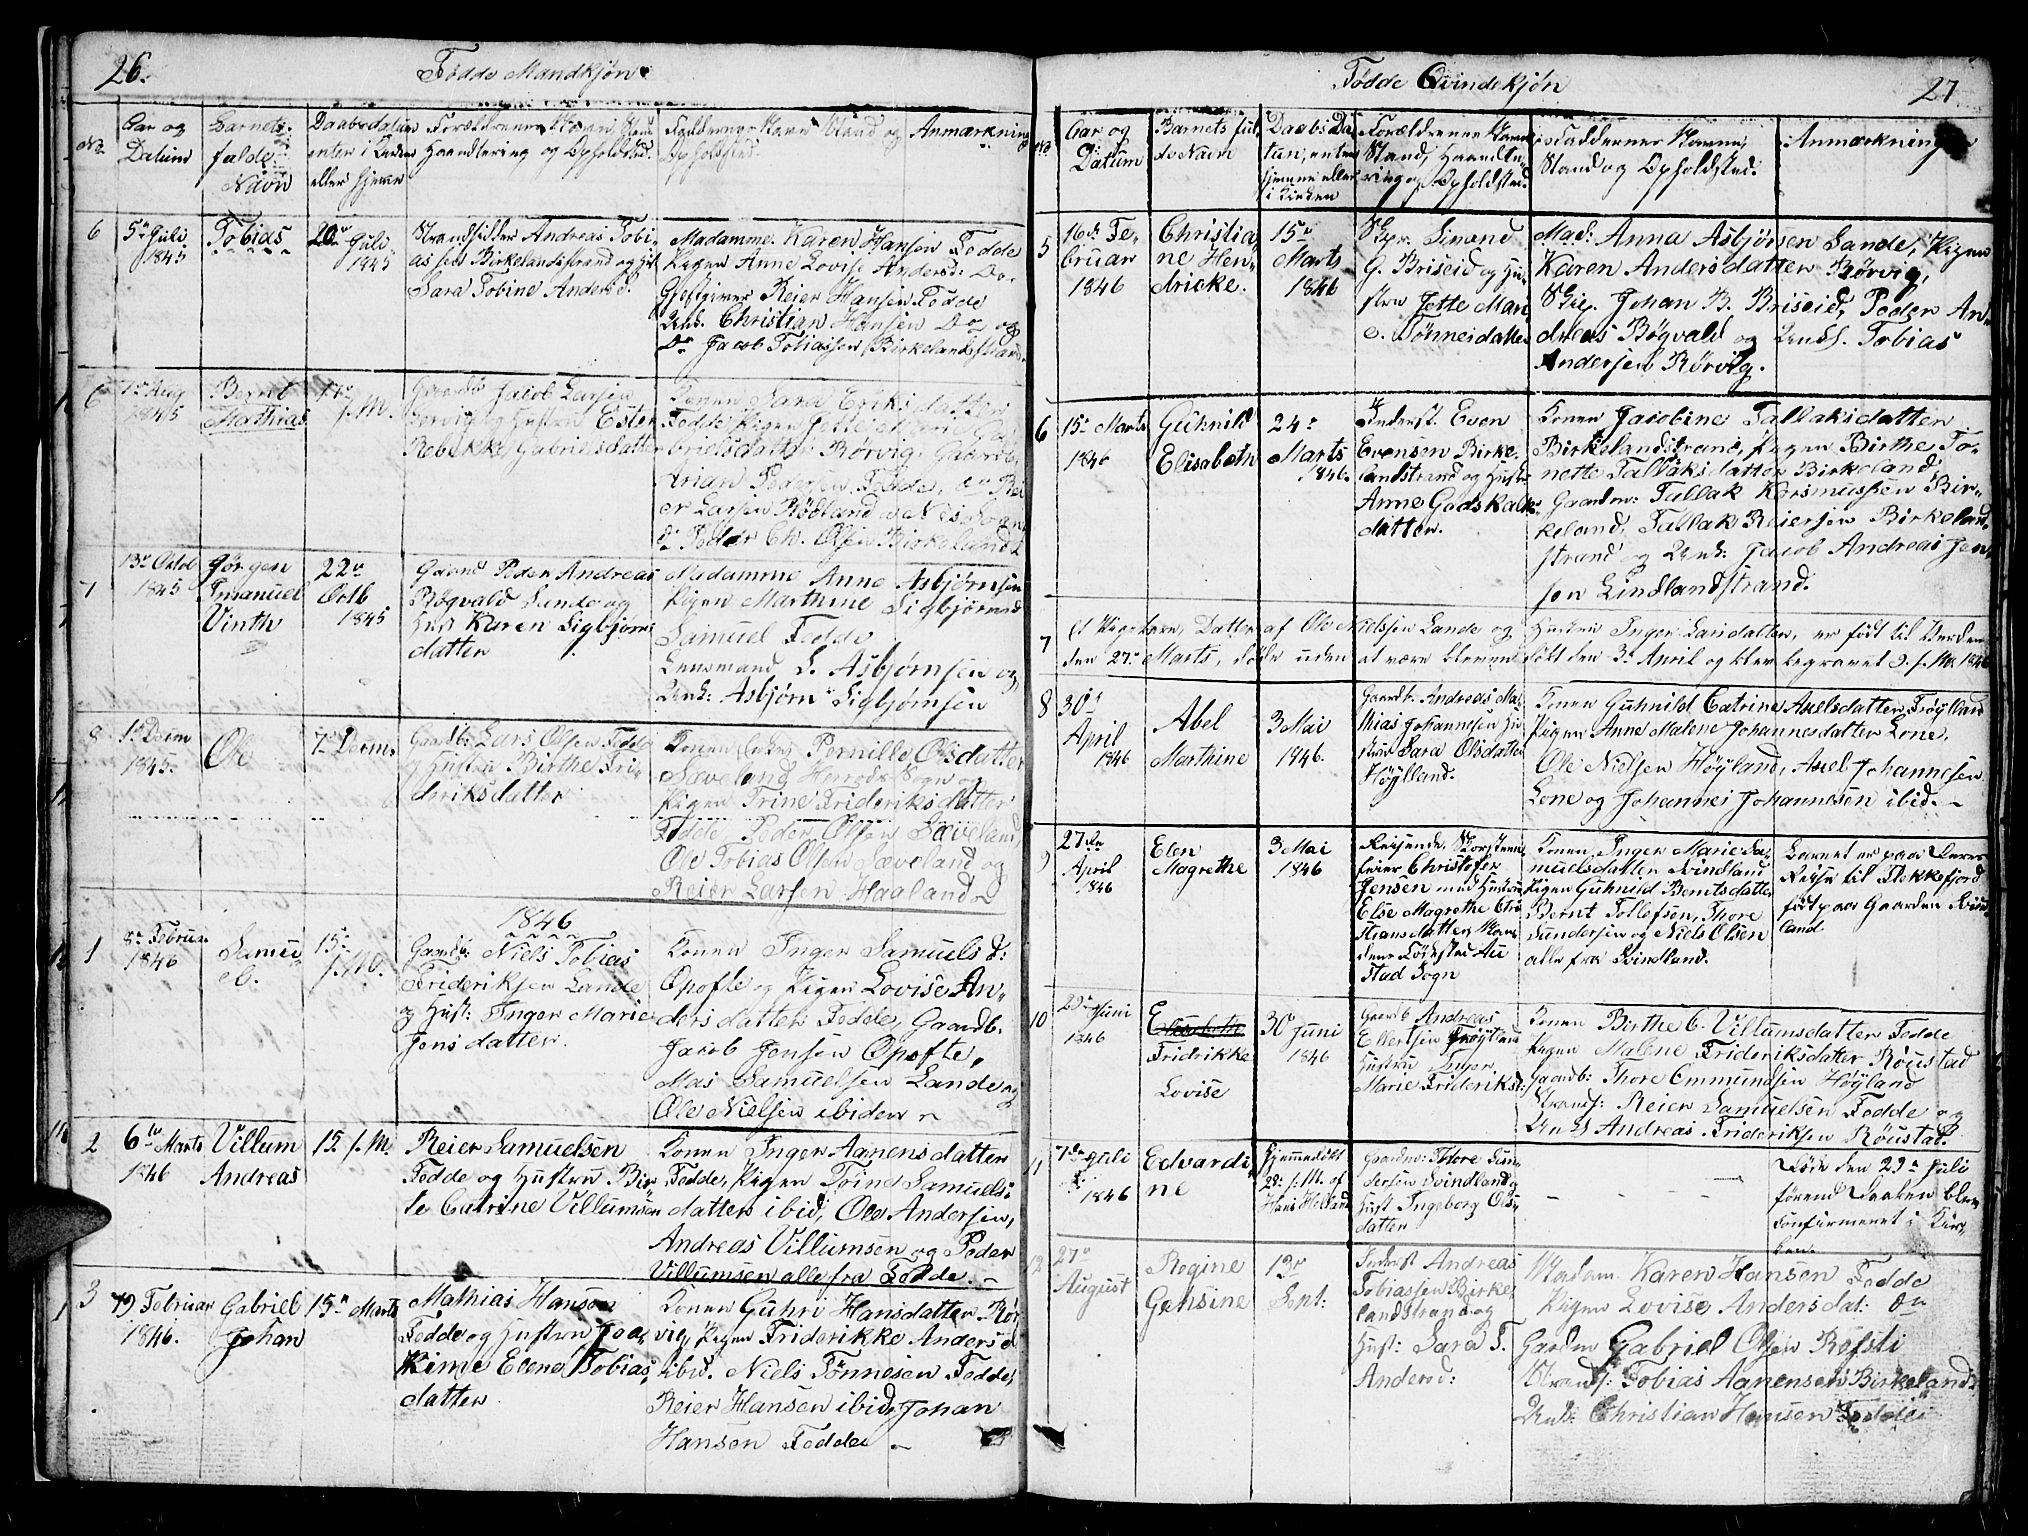 26.
Fødde Mandkjøn.
No
Aar og
Datum
Barnets
fulde
Navn
Daabsdatum
enten i Kirken
eller hjemme
Forældrenes Navn, Stand
Haandtering og Opholdsted.
Faddernes Navn Stand og
Opholdsted.
Anmærkning
6
5te Juli
1845
Tobias
20de Juli
1845
Strandsidder Andreas Tobi-
assen Birkelandsstrand og Hst
Sara Tobine Andersd.
Madamme Karen Hansen Fedde
Pigen Anne Lovise Andersd: Do.
Gjestgiver Reier Hansen Fedde
Unk. Christian Hansen Do og
Do Jacob Tobiassen Birkelandsstrand.
6
1ste Aug
1845
Bernt
Mathias
17de
s. M.
Gaardb. Jacob Larsen
Rørvig og Hustru Ester
Rebekke Gabrielsdatter
Konen Sara Eriksdatter
Fedde, Pigen Jette Marie Ga-
brielsdatter Rørvig, Gaardb.
Arian Pedersen Fedde, Rei-
er Larsen Røiland
Peder Chr. Olsen Birkeland
7
13de Octob
1845
Jørgen
Imanuel
Vinth
22de
Octb
1845
Gaard Peder Andreas
Røgvald Sande og
Hust Karen Sigbjørns
datter
Madamme Anne Asbjørnsen
Pigen Marthine Sigbjørnsd
Samuel Fedde
Lensmand S. Asbjørnsen og
Unk: Asbjørn Sigbjørnsen
8
1ste Decm
1845.
Ole
7de Decm.
Gaardb: Lars Olsen Fedde
og Hustru Birthe Fri-
deriksdatter
Konen Pernille Olsdatter
Sæveland Herrods Sogn og
Pigen Trine Frideriksdatter
Fedde, Peder Olsen Sæveland,
Ole Tobias Olsen Sæveland og
Reier Larsen Haaland
1846
1
8de Februar
1846
Samu-
el.
15de
s. M.
Gaardb: Niels Tobias
Frideriksen Sande
og Hust: Inger Marie
Jensdatter.
Konen Inger Samuelsd:
Opofte og Pigen Lovise An-
dersdatter Fedde, Gaardb.
Jacob Jensen Opofte,
Mas Samuelsen Sande og
Ole Nielsen ibiden
2
6te Marts
1846
Villum
Andreas
15. s. M.
Reier Samuelsen
Fedde og Hustru Bir-
te Catrine Villumsen
Konen Inger Aanensdatter
Fedde, Pigen Trine Samuels-
datter ibid, Ole Andersen,
Andreas Villumsen og Peder
Villumsen alle fra Fedde.
3
19 Februar
1846.
Gabriel
Johan
15de Marts
Mathias Hansen
Fedde og Hustru Joa-
kime Elene Tobias-
datter
Konen Guhri Hansdatter Rør-
vig, Pigen Friderikke Andersd
ibid. Niels Tønnesen Fedde,
Reier Hansen ibid, Johan
Hansen Fedde
27
Fødde Qvindekjøn
No
Aar og
Datum
Barnets ful-
de Navn
Daabs Da-
tum, enten
hjemme eller
i Kirken
Forældrenes Navn
Stand, Haandte-
ring og Opholdsted.
Faddernes Navne,
Stand og Opholdsted.
Anmærkninger
5
16de Fe-
bruar
1846
Christia-
ne Hen-
drikke.
15de
Marts
1846
Skpr. Simond
G. Briseid og Hu-
stru Jette Mari
e. Tønnesdatter
Mad: Anna Asbjørsen Sande, Pigen
Karen Andersdatter Rørvig,
Skp. Johan B. Briseid, Peder An-
dreas Røgvald og Unk. Tobias
Andersen Rørvig.
6
15de Marts
1846
Guhnild
Elisabeth
24de
Marts
1846.
Inderst. Even
Evensen Birke-
landstrand og Hustr.
Anne Godskalks-
datter.
Konen Jacobine Tallaksdatter
Birkelandstrand, Pigen Birthe To-
nette Tallaksdatter Birkeland
Gaardm: Tallak Rasmussen Bir-
keland, Tallak Reiersen Birkeland-
strand og Unk: Jacob Andreas Jen-
sen Lindlandstrand.
7
Et Pigebarn, Datter af Ole Nielsen Sande og Hustru Inger Larsdatter, er født til Verden
den 27de Marts, døde uden at være bleven døbt den 3de April og blev begravet 9. s. M. 1846
8
30de
April
1846
Abel
Marthine
3 Mai
1846.
Gaardb. Andreas Ma-
thias Johannesen Hu-
stru Sara Olsdatter
Høylland.
Konen Guhnild Catrine Axelsdatter Frøyland
Pigen Anne Malene Johannesdatter Lone,
Ole Nielsen Høyland, Axel Johannesen
Lone og Johannes Johannesen ibid.
9
27de
April
1846
Elen
Magrethe
3 Mai
1846
Reisende Skorsteen-
feier Christofer
Jensen med Hustru
Else Magrethe Chri-
stiansdatter,
dens Fødested Au-
stad Sogn
Konen Inger Marie Sa-
muelsdatter Svindland
Pigen Guhnild Berntsdatter
Bernt Tollefsen, Thore
Gundersen og Niels Olsen
alle fra Svindland.
Barnet er paa Deres
Reise til Flekkefjord
født paa Gaarden Svind-
land
10
29de Juni
1846
Fridrikke
Lovise
30 Juni
1846
Gaardb Andreas
Ellertsen Frøyland
Hustru Inger
Marie Frideriksd:
Konen Birthe C. Villumsdatter Fedde
Pigen Malene Frideriksdatter Røustad
Gaardb: Thore Ommundsen Høyland
Strands: Reier Samuelsen Fedde og
Unk Andreas Frideriksen Røustad.
11
7de Juli
1846
Edvardi-
ne
Hjemmedøbt
28: s. M. af
Hans Helland
Gaardm: Thore Gun-
dersen Svindland og
Hust Ingeborg Ols-
datter
Døde den 29de Juli
førend Daaben blev
Confirmeret i Kir-
ken.
12
27de
August
Regine
Gensine
13de
Sept:
Inderst Andreas
Tobiassen Birke-
landstrand og
Hust: Sara T.
Andersd:
Madam Karen Hansen Fedde
Pigen Lovise Andersdat: Do
Gardm Gabriel Olsen Røfsti
Strands: Tobias Aanensen Birkeland-
Unk: Christian Hansen Fedde